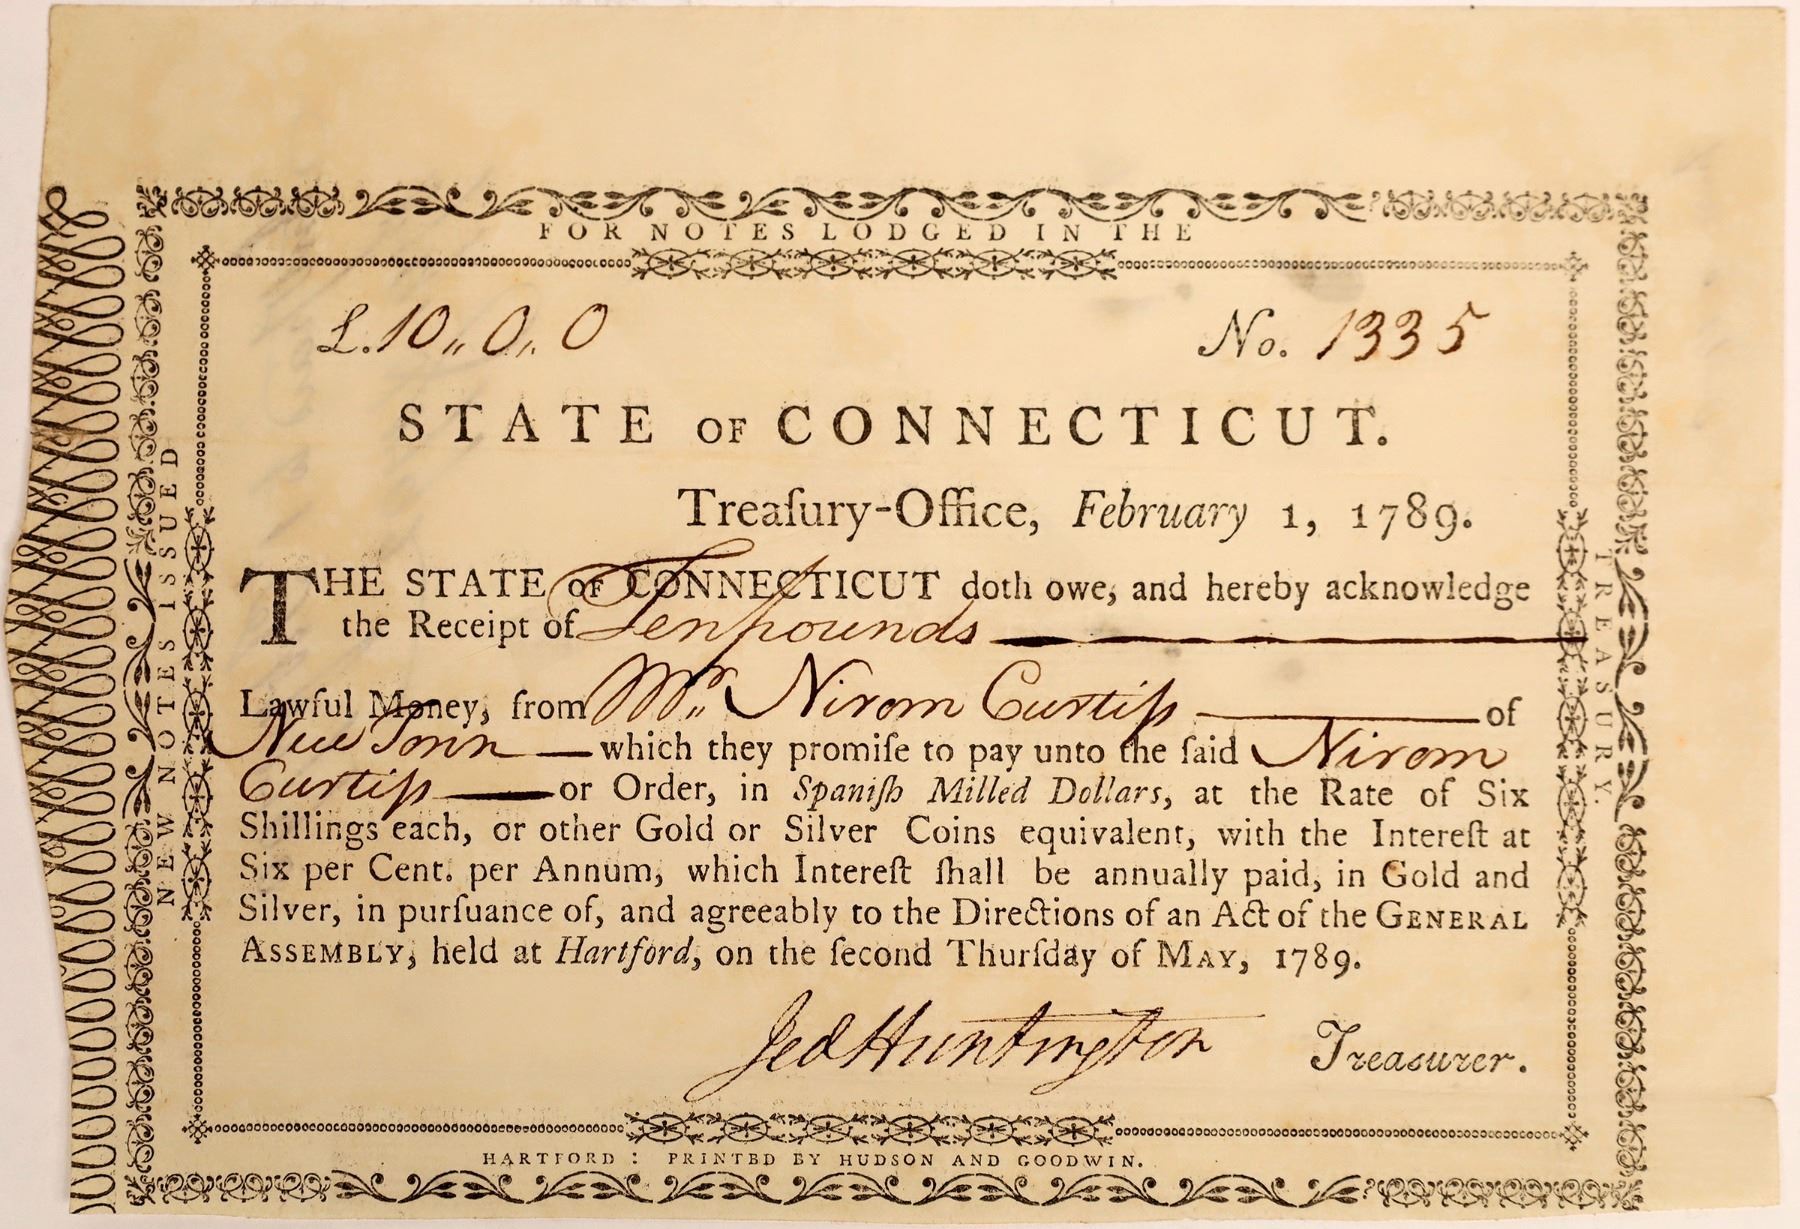 NEW NOTES ISSUED
FOR NOTES LODGED IN THE
TREASURY.
£. 10,, 0,, 0
No. 1335
STATE OF CONNECTICUT.
Treaſury-Office, February 1, 1789.
THE STATE OF CONNECTICUT doth owe, and hereby acknowledge
the Receipt of Ten pounds
Lawful Money, from Mr,, Nirom Curtiſs of
New Town which they promiſe to pay unto the ſaid Nirom
Curtiſs or Order, in Spaniſh Milled Dollars, at the Rate of Six
Shillings each, or other Gold or Silver Coins equivalent, with the Intereſt at
Six per Cent. per Annum, which Intereſt ſhall be annually paid, in Gold and
Silver, in purſuance of, and agreeably to the Directions of an Act of the GENERAL
ASSEMBLY, held at Hartford, on the ſecond Thurſday of MAY, 1789.
Jed Huntington Treasurer.
HARTFORD: PRINTED BY HUDSON AND GOODWIN.